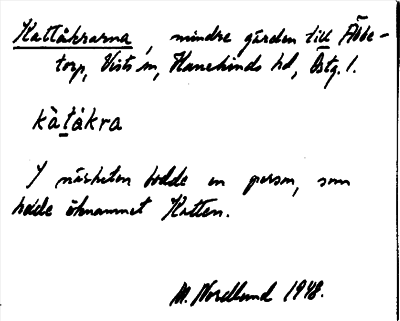 Kattåkrarna, mindre gärden till Åbbe-
torp, Vists sn, Hanekinds hd, Östg. l.
kàt̲åkra
I närheten bodde en person, som
hade öknamnet Katten.
M. Nordlund 1948.